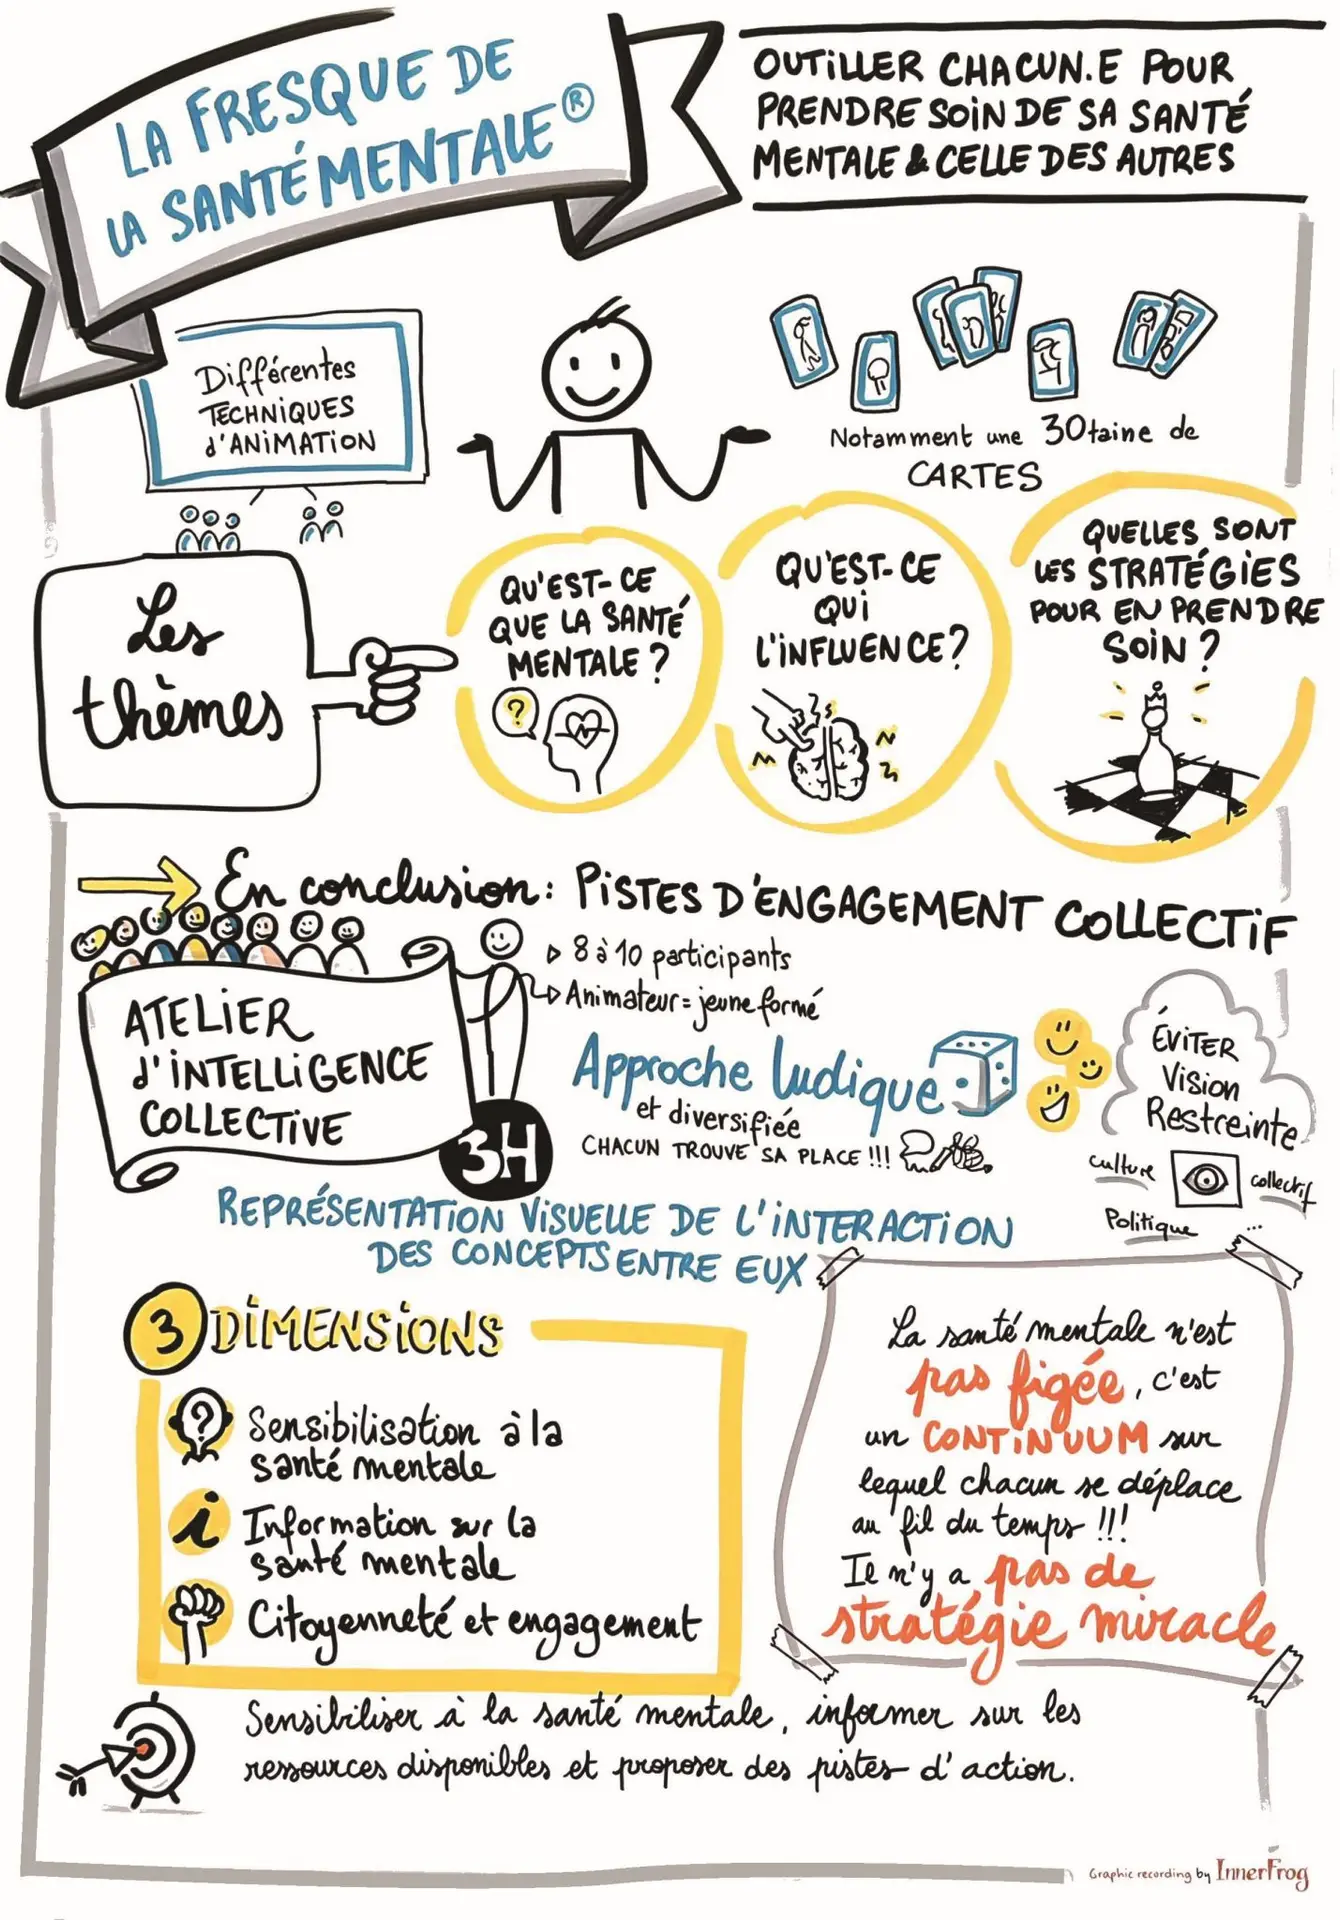 LA FRESQUE DE
LA SANTÉ MENTALE®
OUTILLER CHACUN.E POUR
PRENDRE SOIN DE SA SANTÉ
MENTALE & CELLE DES AUTRES
Différentes
TECHNIQUES
d'ANIMATION
Notamment une 30taine de
CARTES
Les
thèmes
QU'EST-CE
QUE LA SANTÉ
MENTALE ?
?
QU'EST-CE
QUI
L'INFLUENCE?
QUELLES SONT
LES STRATÉGIES
POUR EN PRENDRE
SOIN ?
En conclusion : PISTES D'ENGAGEMENT COLLECTIF
ATELIER
d'INTELLIGENCE
COLLECTIVE
3H
8 à 10 participants
Animateur = jeune formé
Approche ludique
et diversifiée
CHACUN TROUVE SA PLACE !!!
ÉVITER
Vision
Restreinte
culture
collectif
Politique
...
REPRÉSENTATION VISUELLE DE L'INTERACTION
DES CONCEPTS ENTRE EUX
3 DIMENSIONS
?
Sensibilisation à la
santé mentale
i
Information sur la
santé mentale
Citoyenneté et engagement
La santé mentale n'est
pas figée, c'est
un CONTINUUM sur
lequel chacun se déplace
au fil du temps !!!
Il n'y a pas de
stratégie miracle
Sensibiliser à la santé mentale, informer sur les
ressources disponibles et proposer des pistes d'action.
Graphic recording by InnerFrog